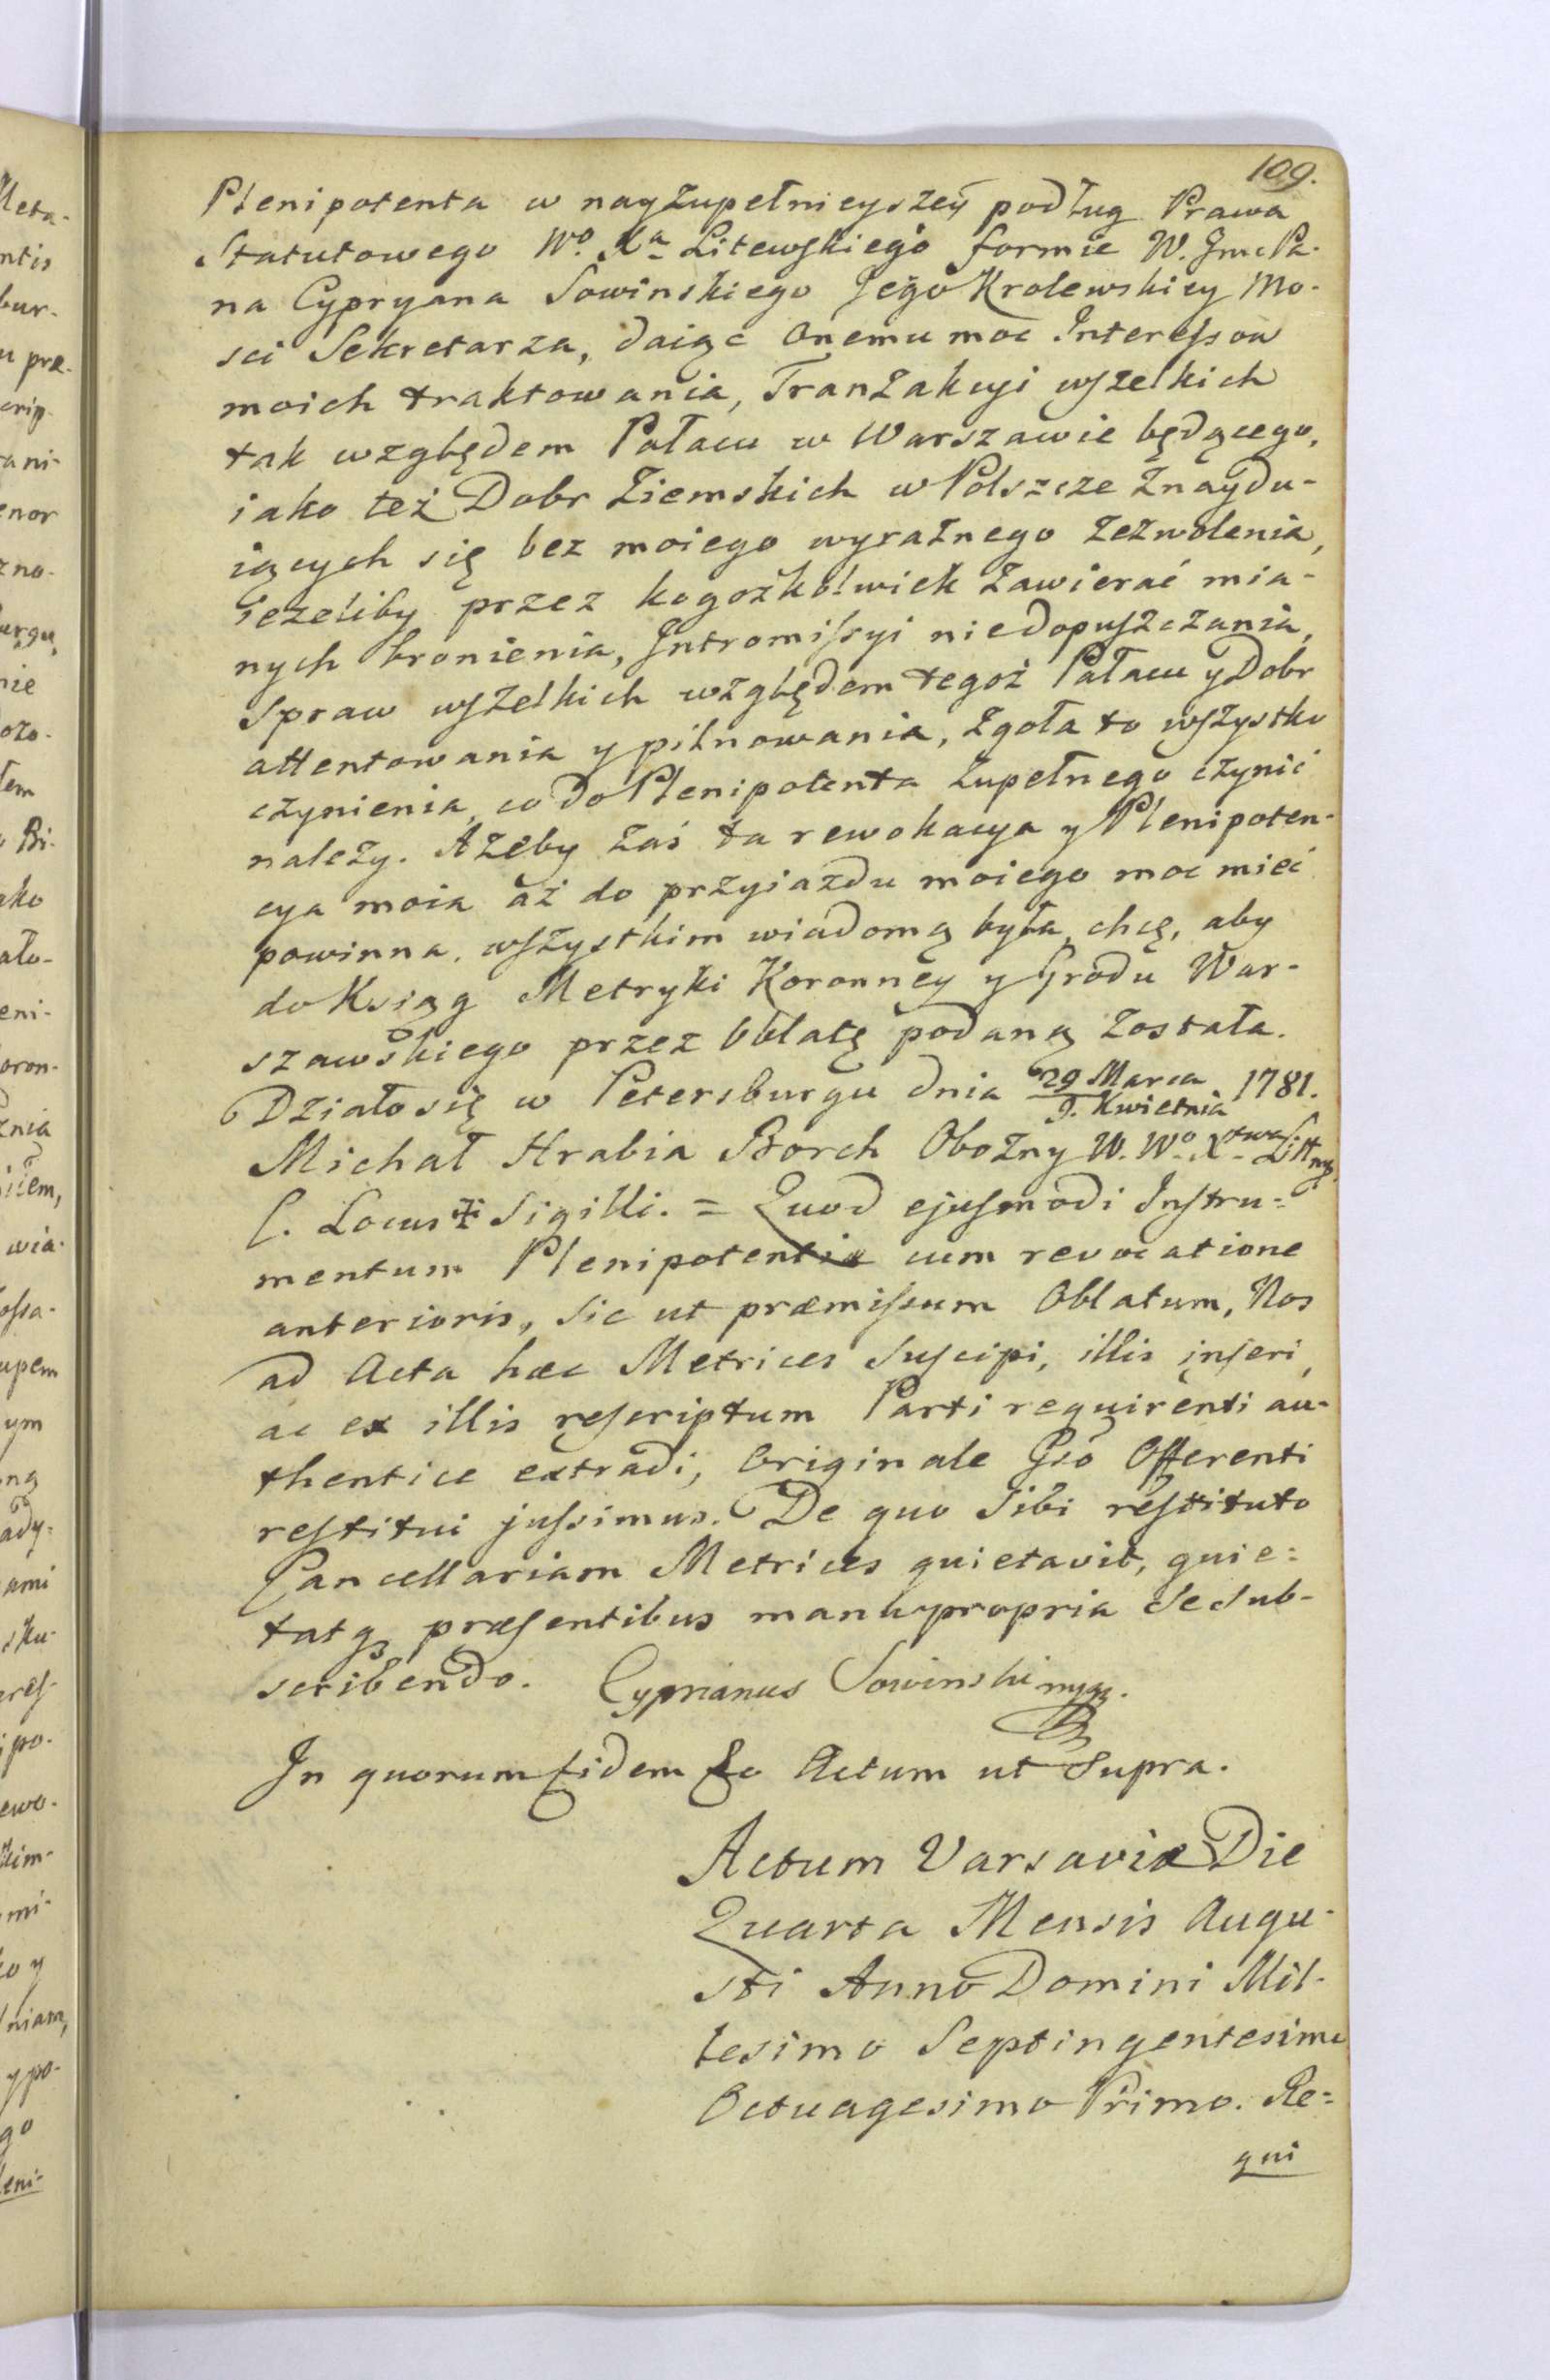 109.
Plenipotenta w nayzupełnieyszey podług Prawa
Statutowego Wo. Xa Litewskiego formie W. Jmc Pa-
na Cypryana Sowinskiego Jego Krolewskiey Mo-
sci Sekretarza, daiąc onemu moc Interessow
moich traktowania, Tranzakcyi wszelkich
tak względem Pałacu w Warszawie będącego,
iako też Dobr Ziemskich w Polszcze znaydu-
iących się bez moiego wyraznego zezwolenia,
iezeliby przez kogożkolwiek zawierać mia-
nych bronienia, Intromissyi niedopuszczania,
Spraw wszelkich względem tegoż Pałacu y Dobr
attentowania y pilnowania, zgoła to wszystko
czynienia, co do Plenipotenta zupełnego czynić
należy. Ażeby zaś ta rewokacya y Plenipoten-
cya moia aż do przyiazdu moiego moc mieć
powinna, wszystkim wiadomą była, chcę, aby
do Ksiąg Metryki Koronney y Grodu War-
szawskiego przez Oblatę podaną została.
Działo się w Petersburgu dnia 29 Marca / 9. Kwietnia 1781.
Michał Hrabia Borch Obozny W. Wo. Xtwa Litt
L. Locus Sigilli. = Quod ejusmodi Instru-
mentum Plenipotentiæ cum revocatione
anterioris, sic ut præmissum Oblatum, Nos
ad Acta hæc Metrices suscipi, illis inseri,
ac ex illis rescriptum Parti requirenti au-
thentice extradi, Originale Gso Offerenti
restitui jussimus. De quo sibi restituto
Cancellariam Metrices quietavit, quie-
tatq præsentibus manu propria se sub-
scribendo. Cyprianus Sowinski mpp.
In quorum fidem &c Actum ut Supra.
Actum Varsaviæ Die
Quarta Mensis Augu-
sti Anno Domini Mil-
lesimo Septingentesimo
Octuagesimo Primo. Re-
qui